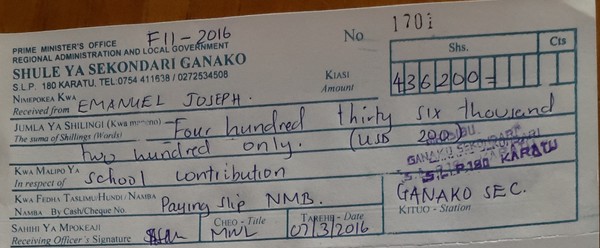 PRIME MINISTER'S OFFICE F11-2016 No 1701
REGIONAL ADMINISTRATION AND LOCAL GOVERNMENT
SHULE YA SEKONDARI GANAKO Shs. Cts
S.L.P. 180 KARATU, TEL:0754 411638 / 0272534508 KIASI 436200=
NIMEPOKEA KWA Amount
Received from EMANUEL JOSEPH.
JUMLA YA SHILINGI (Kwa maneno) Four hundred thirty six thousand
The suma of Shillings (Words) two hundred only. (USD 200)
KWA MALIPO YA GANAKO SEKONDARI
In respect of school contribution S.L.P 180 KARATU
KWA FEDHA TASLIMU/HUNDI / NAMBA GANAKO SEC.
NAMBA By Cash/Cheque No. Paying slip NMB. KITUO - Station
SAHIHI YA MPOKEAJI CHEO - Title TAREHE - Date
Receiving Officer's Signature MWL 07/3/2016